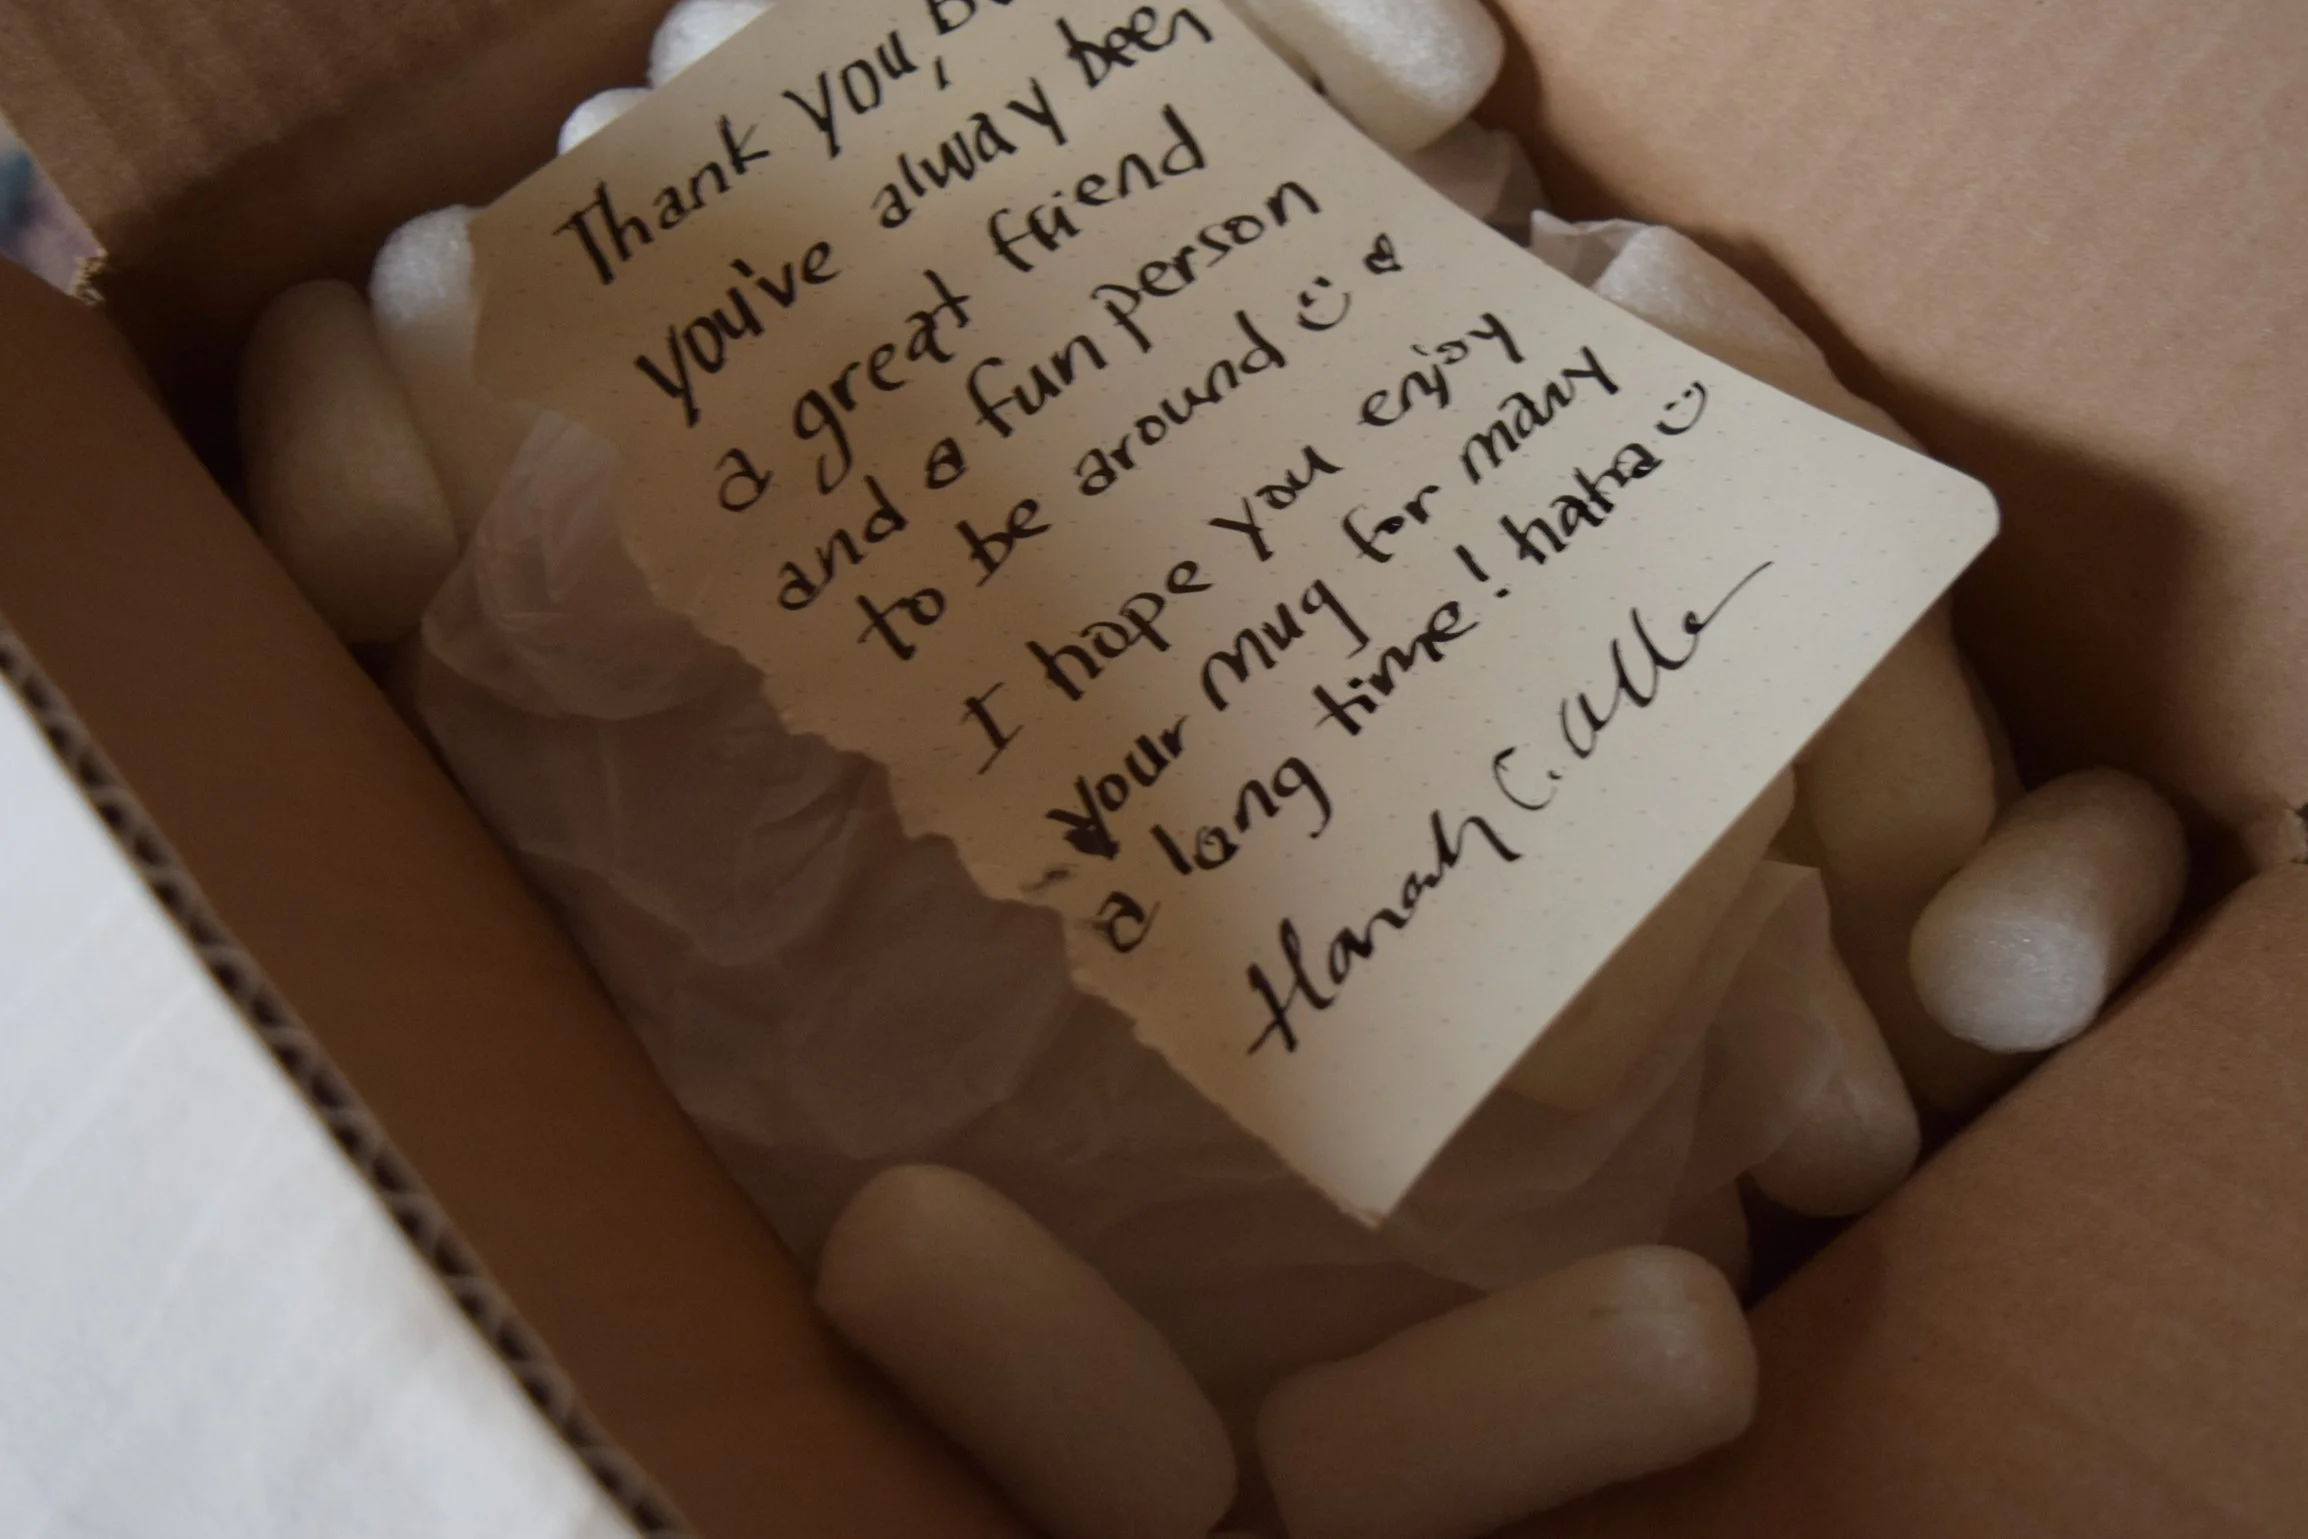 Thank you,
you've alway been
a great friend
and a fun person
to be around
I hope you enjoy
your mug for many
a long time! haha
Hannah C.